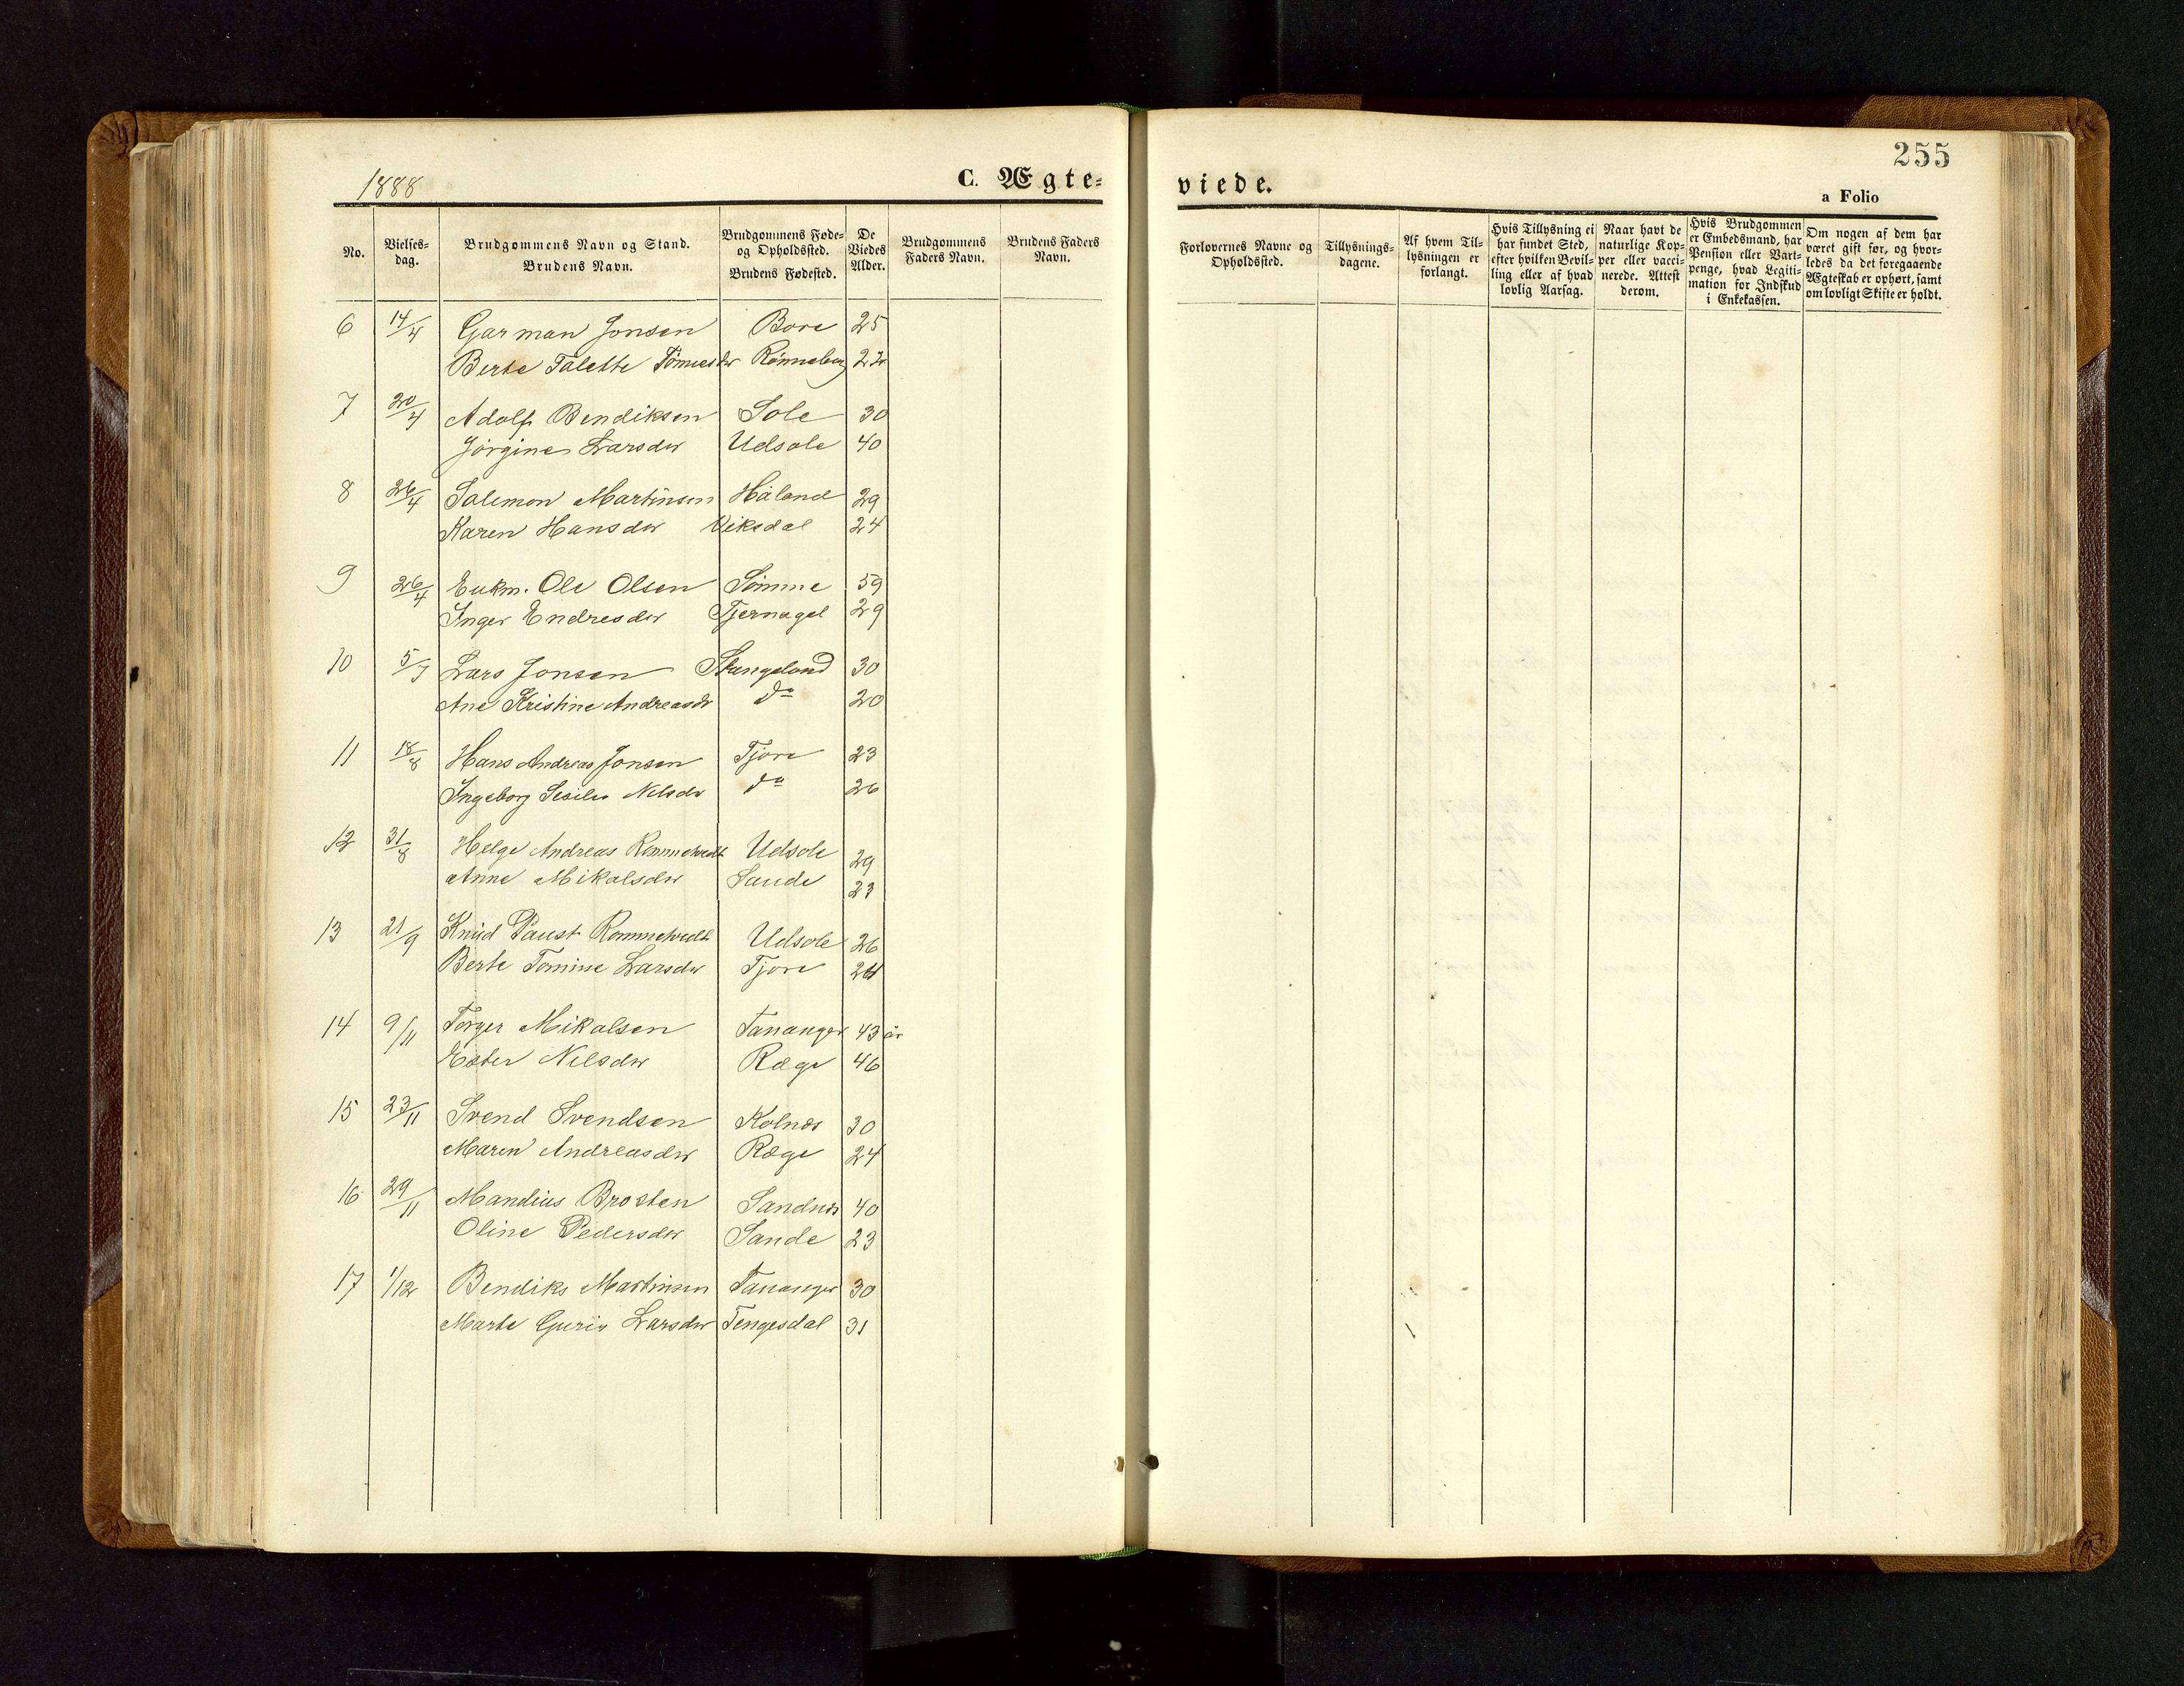 1888
C. Ægte-
viede.
255
a Folio
No.
Vielses-
dag.
Brudgommens Navn og Stand.
Brudens Navn.
Brudgommens Føde-
og Opholdssted.
Brudens Fødested.
De
Viedes
Alder.
Brudgommens
Faders Navn.
Brudens Faders
Navn.
Forlovernes Navne og
Opholdssted.
Tillysnings-
dagene.
Af hvem Til-
lysningen er
forlangt.
Hvis Tillysning ei
har fundet Sted,
efter hvilken Bevil-
ling eller af hvad
lovlig Aarsag.
Naar havt de
naturlige Kop-
per eller vacci-
nerede. Attest
derom.
Hvis Brudgommen
er Embedsmand, har
Pension eller Vart-
penge, hvad Legiti-
mation for Indskud
i Enkekassen.
Om nogen af dem har
været gift før, og hvor-
ledes da det foregaaende
Ægteskab er ophørt, samt
om lovligt Skifte er holdt.
6 14/4 Garman Jonsen Bore 25
Berte Talette Rönneberg
7 20/4 Adolf Bendiksen Sole 30
Jörgine Larsdtr Udsole 40
8 26/4 Salemon Martinsen Håland 29
Karen Hansdtr Viksdal 24
9 26/4 Enkm. Ole Olsen Sömme 59
Inger Endresdtr Tjernagel 29
10 5/7 Lars Jonsen Stangeland 30
Ane Kristine Andreasdtr do 20
11 18/8 Hans Andreas Jonsen Tjora 23
Ingeborg Sesilie Nelsdtr do 26
12 31/8 Helge Andreas Rommetvedt Udsole 29
Anne Mikalsdtr Sande 23
13 21/9 Knud Faust Rommetvedt Udsole 26
Berte Tomine Larsdtr Tjora 24
14 9/11 Torger Mikalsen Tananger 43 år
Ester Nelsdtr Ræge 46
15 23/11 Svend Svendsen Kolnæs 30
Maren Andreasdtr Ræge 24
16 29/11 Mandius Brosten Sandnæs 40
Oline Pedersdtr Sande 23
17 1/12 Bendiks Martinsen Tananger 30
Marte Gurie Larsdtr Tengesdal 31